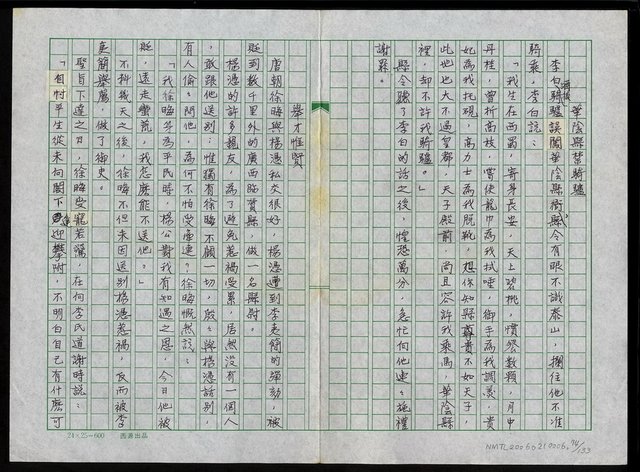 華陰縣禁騎驢
李白酒後騎驢誤闖華陰縣衙，縣令有眼不識泰山，攔住他不准
騎乘。李白說：
「我生在西蜀，寄身長安，天上碧桃，慣餐數顆，月中
丹桂，曾折高枝，嘗使龍巾為我拭唾，御手為我調羹，貴
妃為我托硯，高力士為我脫靴，想你知縣尊貴不如天子，
此地也大不過皇都，天子殿前，尚且容許我乘馬，華陰縣
裡，卻不許我騎驢。」
縣令聽了李白的話之後，惶恐萬分，急忙向他連連施禮
謝罪。
舉才惟賢
唐朝徐晦與楊憑私交很好，楊憑遭到李夷簡的彈劾，被
貶到數千里外的廣西臨賀縣，做一名縣尉。
楊憑的許多親友，為了避免惹禍受累，居然沒有一個人
，敢跟他送別；惟獨有徐晦不顧一切，殷殷與楊憑話別，
有人偷偷問他，為何不怕受連？徐晦慨然說：
「我徐晦身為平民時，楊公對我有知遇之恩，今日他被
貶，遠走蠻荒，我怎麼能不送他？」
不料幾天之後，徐晦不但未因送別楊憑惹禍，反而被李
夷簡舉薦，做了御史。
聖旨下達之日，徐晦受寵若驚，在向李氏道謝時說：
「自忖平生從未向閣下逢迎攀附，不明白自己有什麼可
24×25=600
NMTL20066210006
94/133